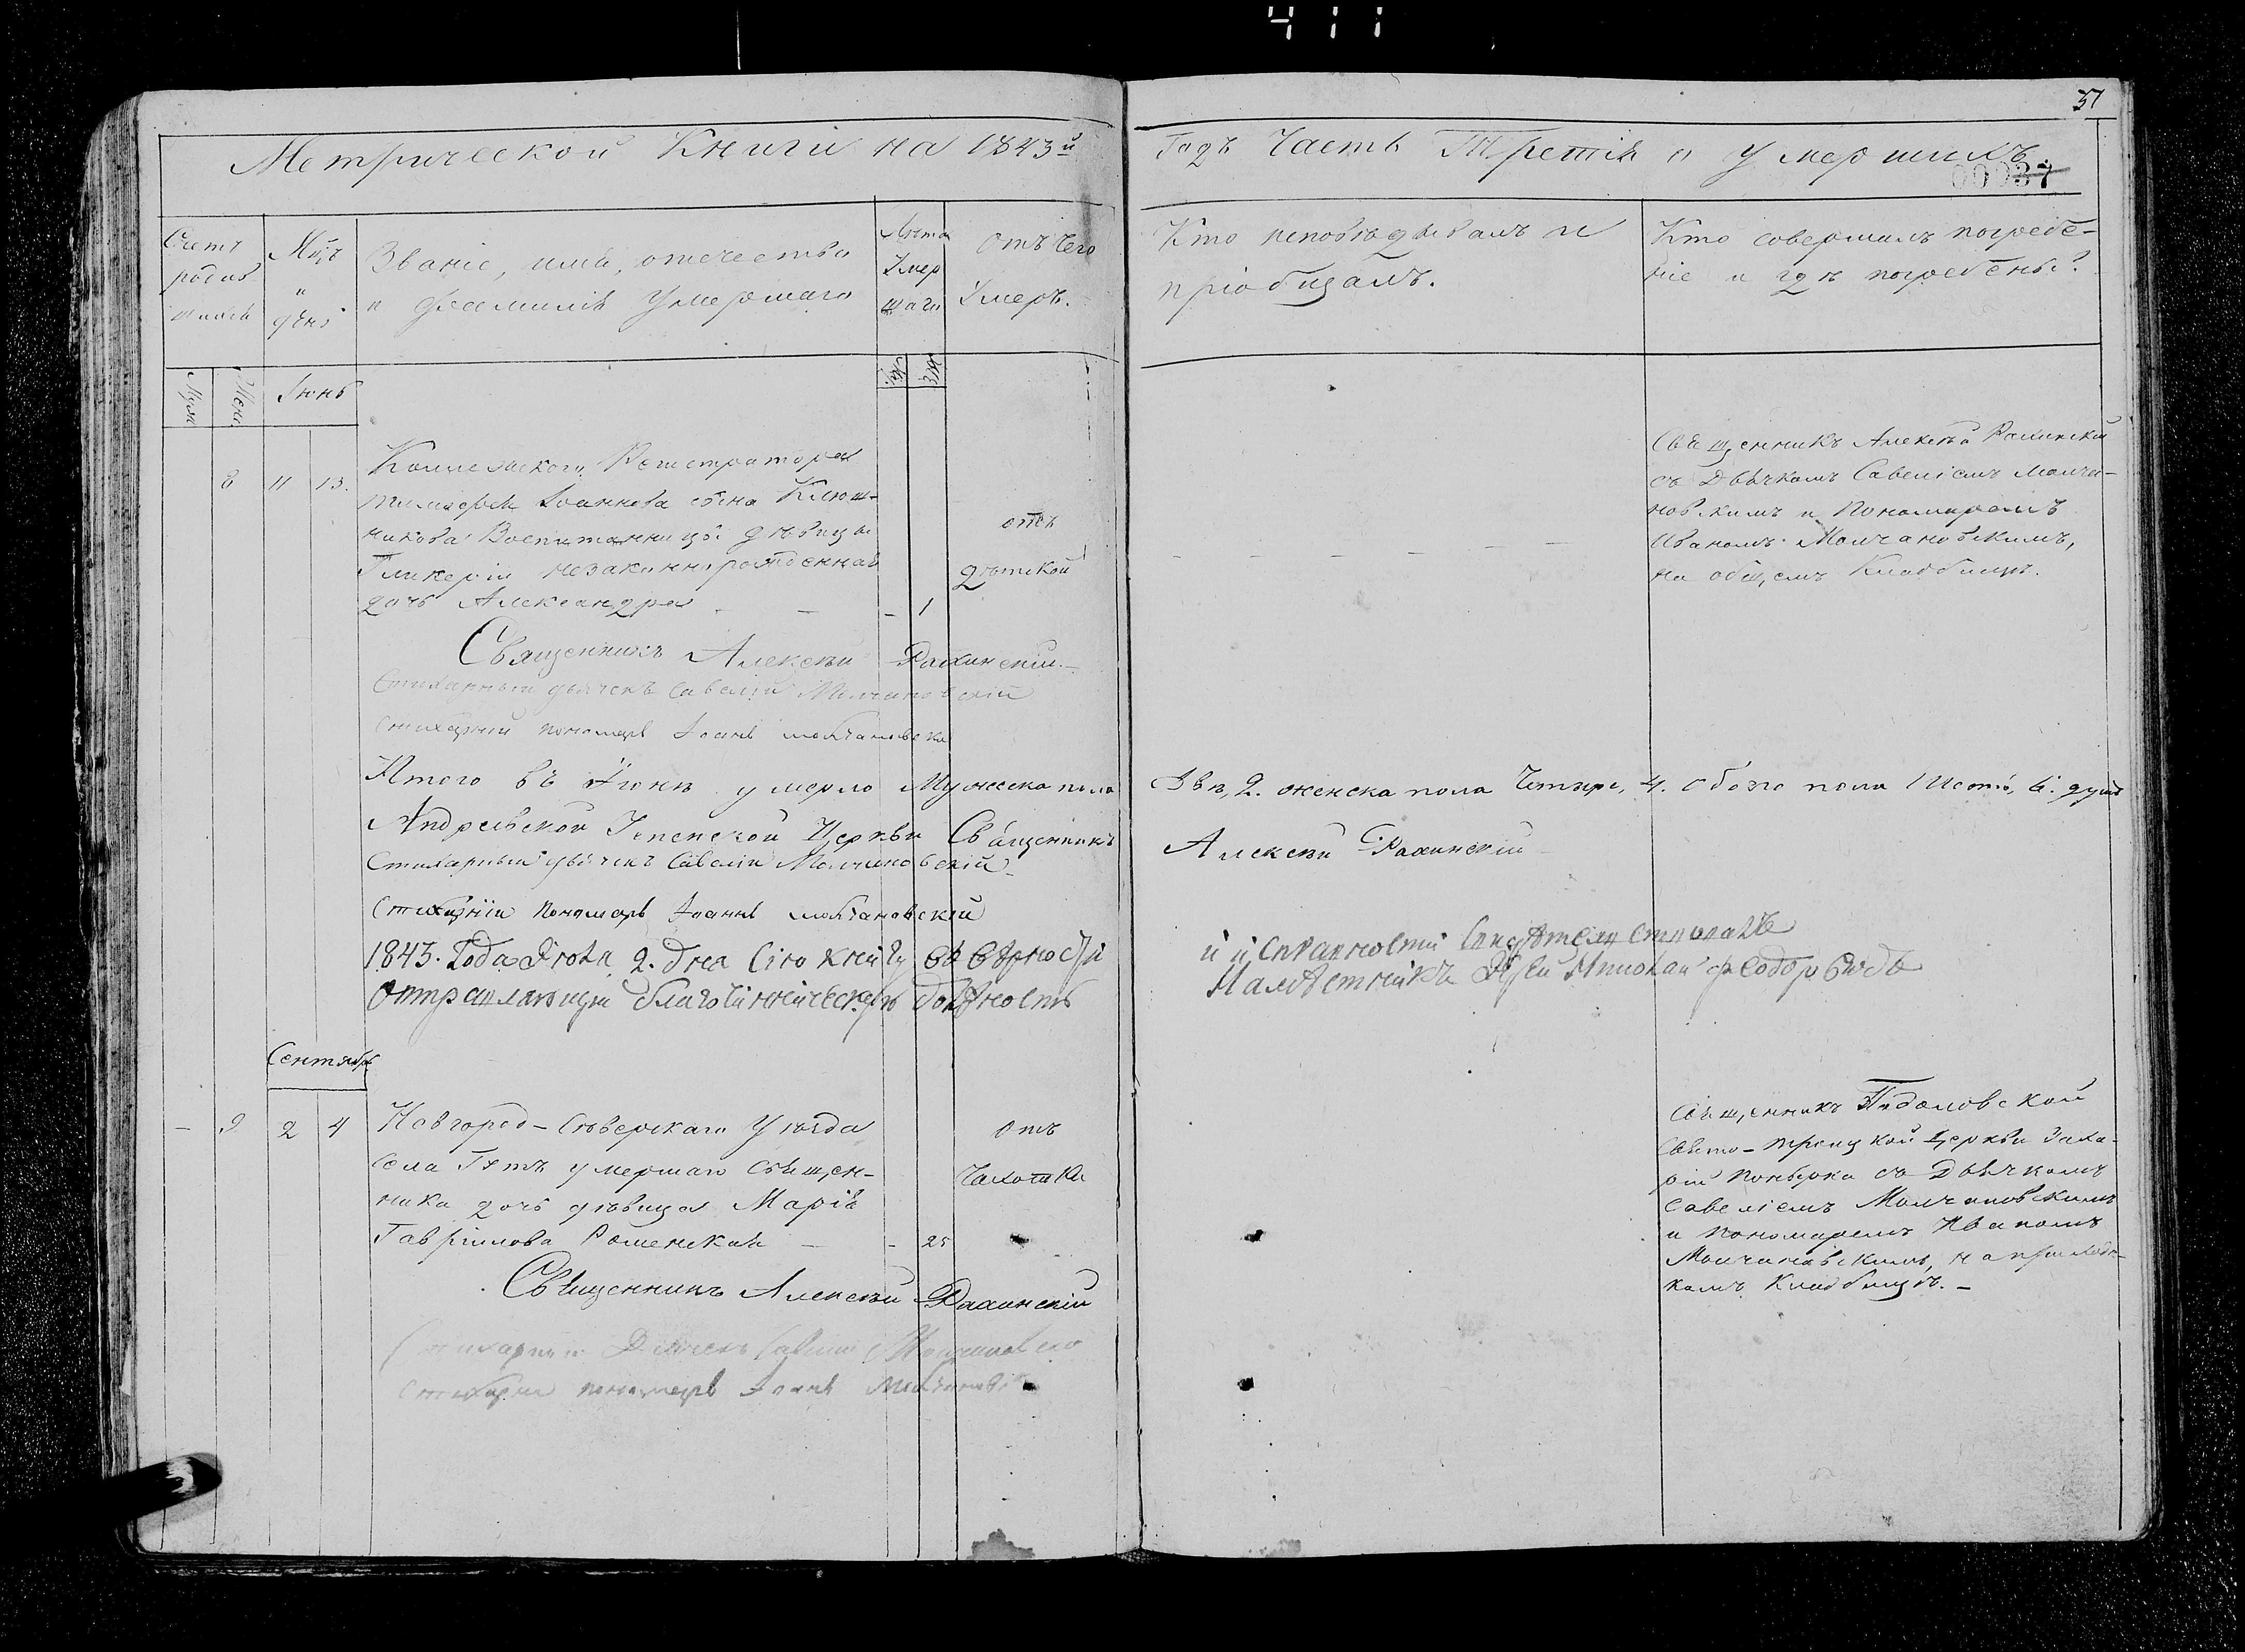 411
37
Метрической Книги на 1843й
Годъ Часть Третія о умершихъ
00037
Счетъ родив шихся
Мцъ и день
Званіе, имя, отечество
и фамилія умершаго
Лѣта Умер шаго
Отъ чего Умеръ.
Кто исповѣдывалъ и
пріобщалъ.
Кто совершалъ погребе-
ніе и гдѣ погребены?
Муж
Жен
Іюнь
Му.
Же
8 11 13.
Коллежскаго Регистратора
Іоаннова сына Ключ-
никова Воспитанницы дѣвицы
Гликеріи незаконнорожденная
дочь Александра - - - 1
отъ
дѣтской
Священникъ Алексѣй Рахинскій
съ Дьячкомъ Савеліемъ Молча-
новскимъ и Пономаремъ
Иваномъ Молчановскимъ,
на общемъ Кладбищѣ.
Священникъ Алексѣй Рахинскій.
Стихарный дьячекъ Савелій Молчановскій
Стихарній пономарь Іоаннъ Молчановскій
Итого въ Іюнѣ умерло Мужеска пола
Два, 2. женска пола Четыре, 4. обоего пола Шесть, 6. душъ
Андреевской Церкви Священникъ
Алексѣй Рахинскій
Стихарный дьячекъ Савелій Молчановскій
Стихарній Пономарь Іоаннъ Молчановскій
1843. Года Іюля 2. дня Сію книгу въ вѣрности
и исправности свидѣтельствовалъ
отправляющій благочинническую должность
Намѣстникъ Іерей Михаилъ
Сентябрь
- 9 2 4
Новгород-Сѣверскаго Уѣзда
Села умершаго Священ-
ника дочь дѣвица Марія
Гавріилова Роменская - - 25
Отъ
Чахотки
Священникъ
Свято-Троицкой Церкви Заха-
рій съ Дьячкомъ
Савеліемъ Молчановскимъ
и Пономаремъ Иваномъ
Молчановскимъ, на приход-
комъ Кладбищѣ. -
Священникъ Алексѣй Рахинскій
Стихарный Дьячекъ Савелій Молчановскій
Стихарни пономарь Іоаннъ